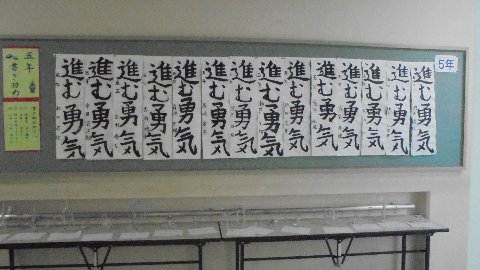 五年
書き初め
進む勇気
進む勇気
進む勇気
進む勇気
進む勇気
進む勇気
進む勇気
進む勇気
進む勇気
進む勇気
進む勇気
進む勇気
進む勇気
進む勇気
5年